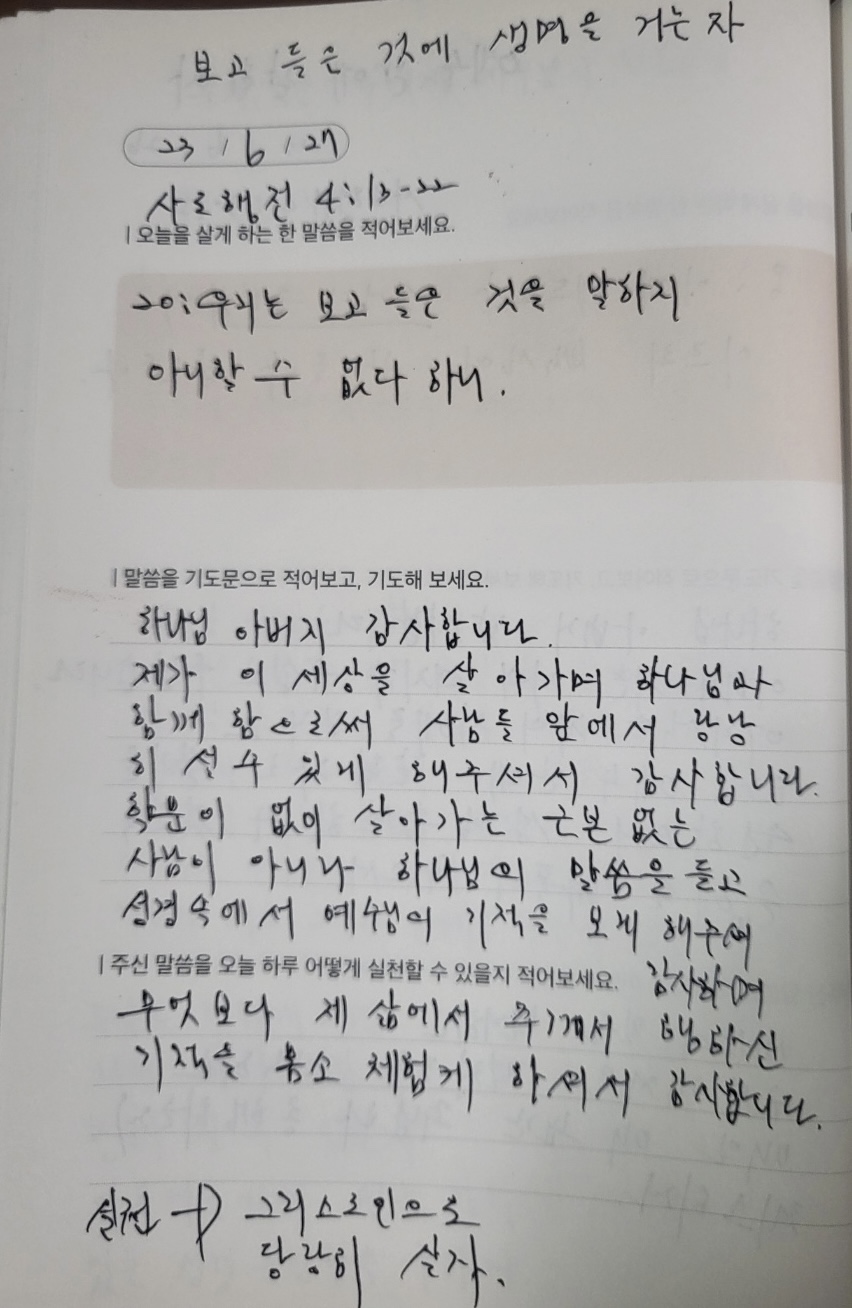 보고 들은 것에 생명을 거는 자
23 / 6 / 27
사도행전 4:13-22
| 오늘을 살게 하는 한 말씀을 적어보세요.
20:우리는 보고 들은 것을 말하지
아니할 수 없다 하니.
| 말씀을 기도문으로 적어보고, 기도해 보세요.
하나님 아버지 감사합니다.
제가 이 세상을 살아가며 하나님과
함께 함으로써 사람들 앞에서 당당
히 설 수 있게 해주셔서 감사합니다.
학문이 없이 살아가는 근본 없는
사람이 아니나 하나님의 말씀을 듣고
성경속에서 예수님의 기적을 보게 해주셔
감사하며
| 주신 말씀을 오늘 하루 어떻게 실천할 수 있을지 적어보세요.
무엇보다 제 삶에서 주께서 행하신
기적을 몸소 체험케 하셔서 감사합니다.
실천 → 그리스도인으로
당당히 살자.